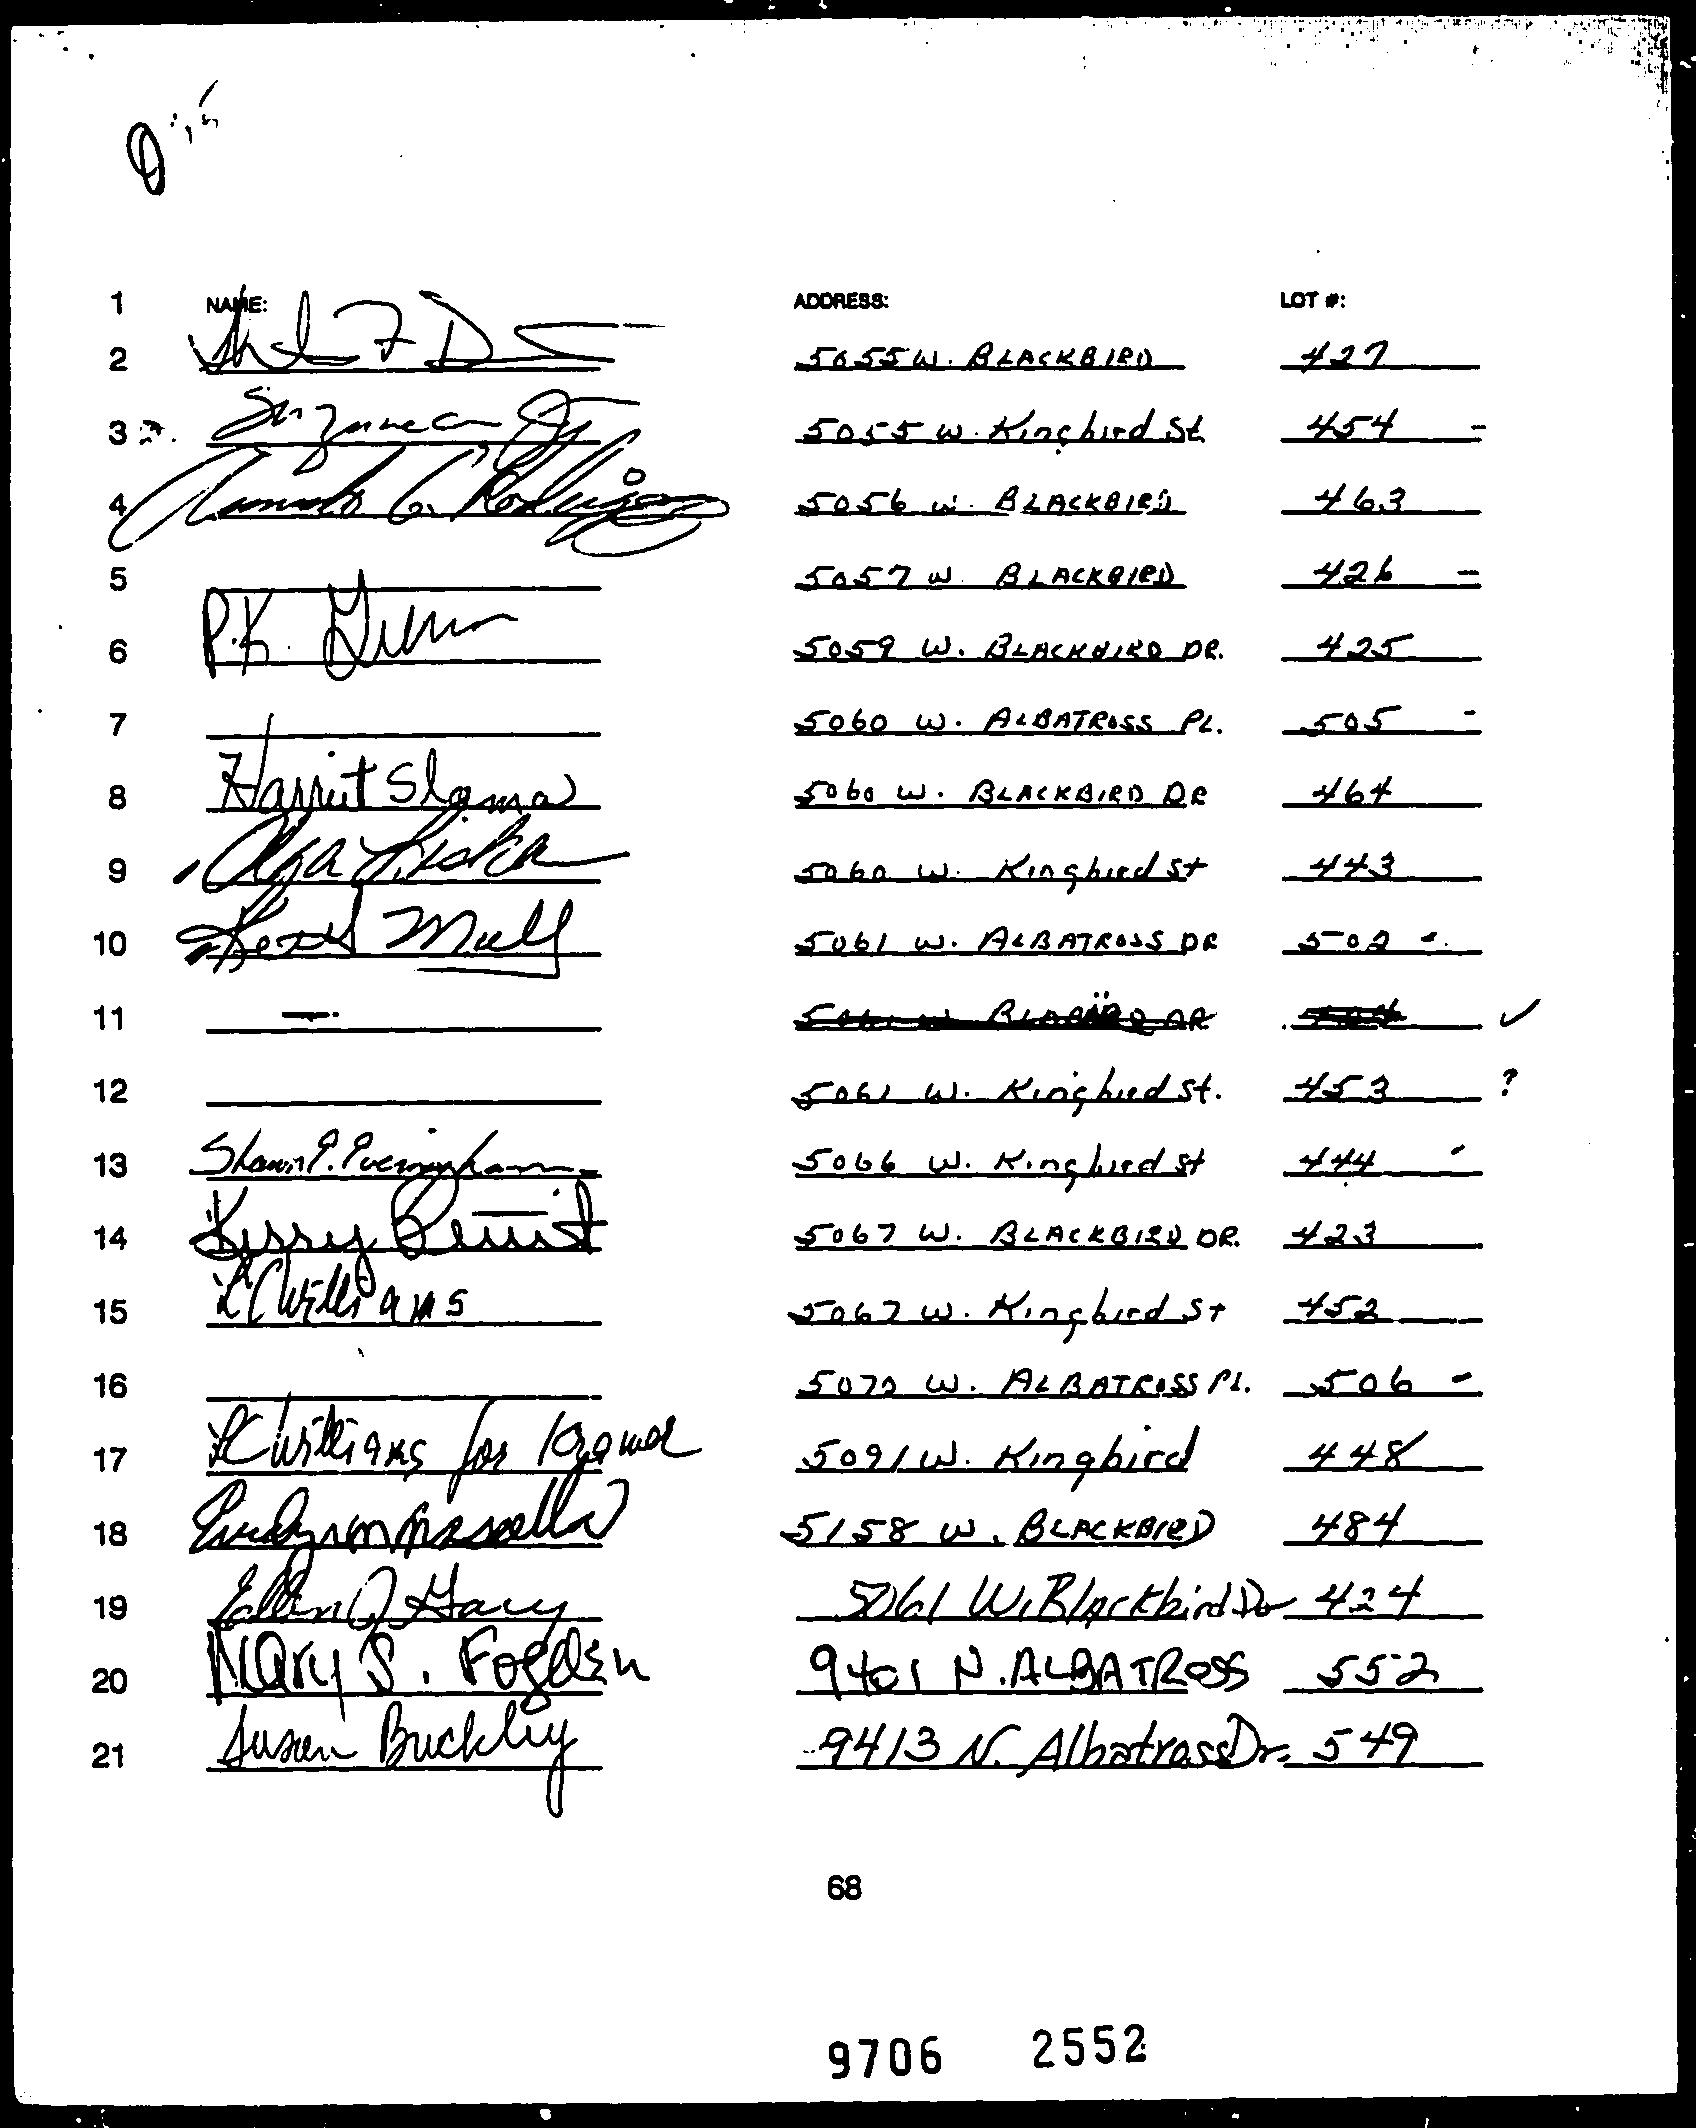 1 NAME: ADDRESS: LOT #:
2 5055 W. BLACKBIRD 427
3 Suzanne 5055 W. Kingbird St 454 -
4 C. Rodriguez 5056 W. BLACKBIRD 463
5 5057 W. BLACKBIRD 426 -
6 P.K. 5059 W. BLACKBIRD DR. 425
7 5060 W. ALBATROSS PL. 505 -
8 Harriet Slama 5060 W. BLACKBIRD DR 464
9 Olga Liska 5060 W. Kingbird St 443
10 5061 W. ALBATROSS DR 502 -
11 - ✓
12 5061 W. Kingbird St. 453 ?
13 Shawn P. Cunningham 5066 W. Kingbird St 444
14 5067 W. BLACKBIRD DR. 423
15 LC Williams 5067 W. Kingbird St 452
16 5070 W. ALBATROSS PL. 506 -
17 LC Williams for Kramer 5091 W. Kingbird 448
18 5158 W. BLACKBIRD 484
19 Ellen J Gary 5061 W. Blackbird Dr 424
20 Mary S. Fogden 9401 N. ALBATROSS 552
21 Susan Buckley 9413 N. Albatross Dr. 549
68
9706 2552